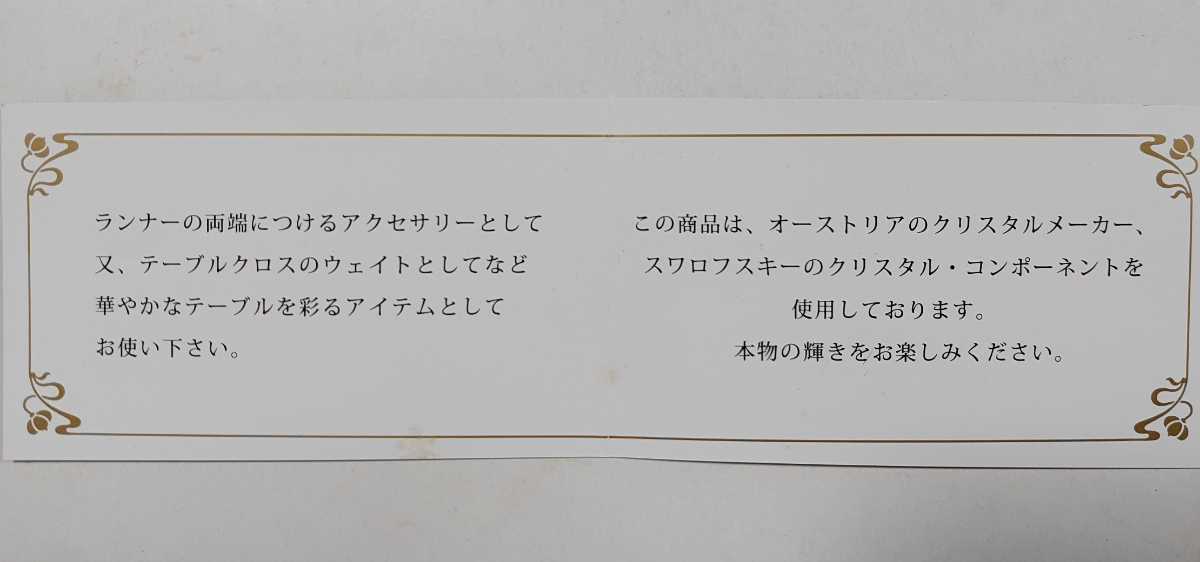 ランナーの両端につけるアクセサリーとして
又、テーブルクロスのウェイトとしてなど
華やかなテーブルを彩るアイテムとして
お使い下さい。
この商品は、オーストリアのクリスタルメーカー、
スワロフスキーのクリスタル・コンポーネントを
使用しております。
本物の輝きをお楽しみください。